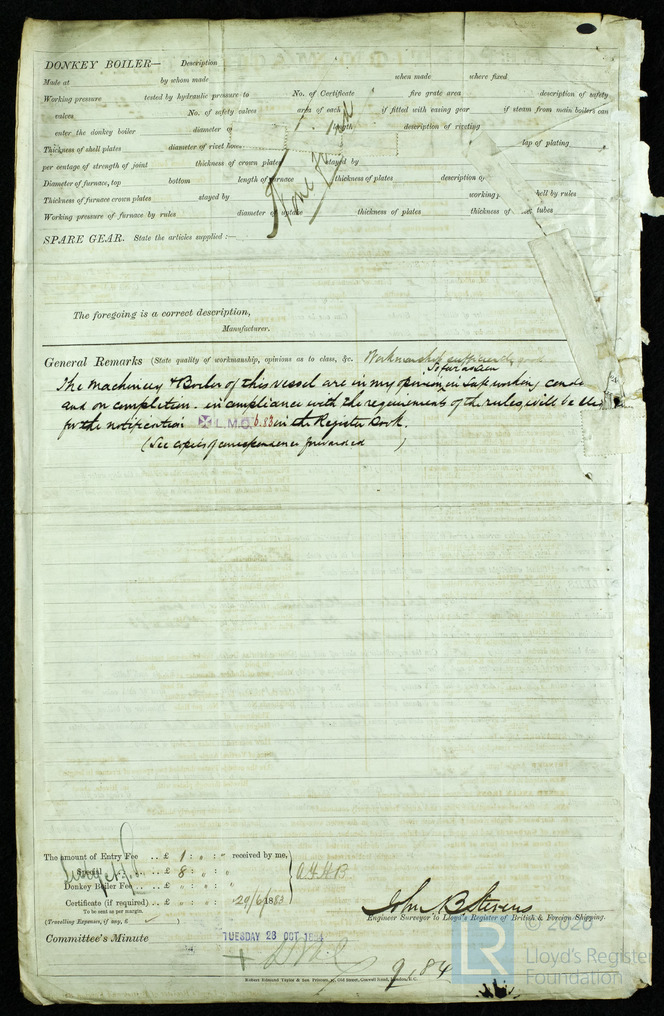 DONKEY BOILER— Description
Made at by whom made when made where fixed
Working pressure tested by hydraulic pressure to No. of Certificate fire grate area description of safety
valves No. of safety valves area of each if fitted with easing gear if steam from main boilers can
enter the donkey boiler diameter of length description of riveting
Thickness of shell plates diameter of rivet holes lap of plating
per centage of strength of joint thickness of crown plates stayed by
Diameter of furnace, top bottom length of furnace thickness of plates description of
Thickness of furnace crown plates stayed by working shell by rules
Working pressure of furnace by rules diameter of uptake thickness of plates thickness of tubes
None
SPARE GEAR. State the articles supplied :—
The foregoing is a correct description,
Manufacturer.
General Remarks (State quality of workmanship, opinions as to class, &c. Workmanship sufficiently good
So far as seen
The Machinery & Boiler of this vessel are in my opinion, in safe working
and on completion in compliance with the requirements of the rules, will be
for the notification ✠ L.M.C. 6.83 in the Register Book.
(See copies of correspondence forwarded )
The amount of Entry Fee .. £ 1 : " : " received by me,
Special .. £ 8 : " : "
Donkey Boiler Fee .. £ " : " : "
Certificate (if required) .. £ " : " : " 29/6/1883
To be sent as per margin.
(Travelling Expenses, if any, £ )
John B Stevens
Engineer Surveyor to Lloyd's Register of British & Foreign Shipping.
Committee's Minute
TUESDAY 28 OCT 1884
+ L.M.C
9.84
© 2020
LR
Lloyd's Register
Foundation